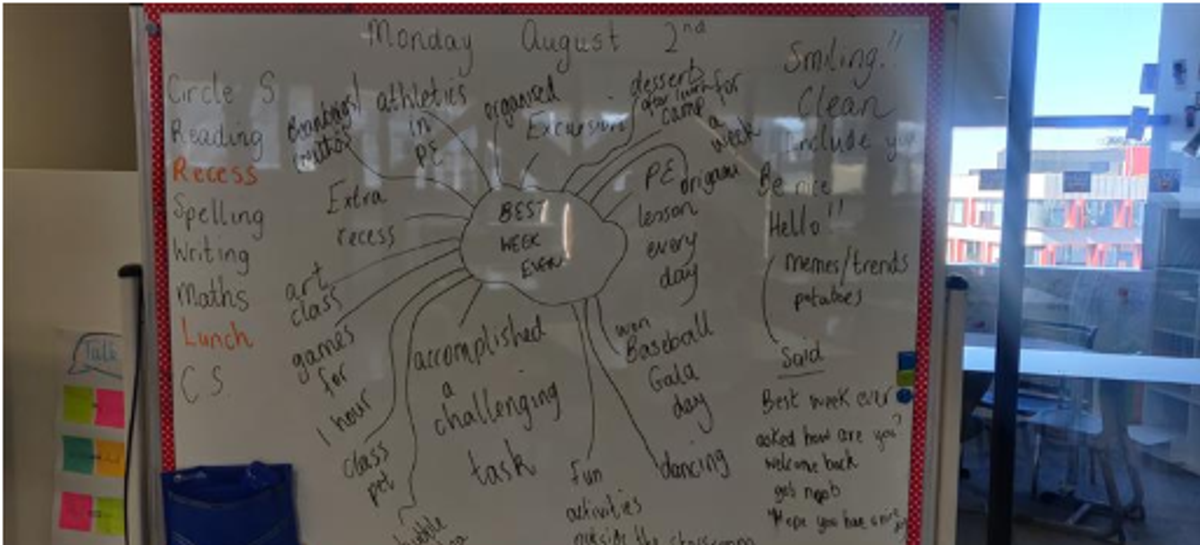 Monday August 2nd
Circle S
Reading
Recess
Spelling
Writing
Maths
Lunch
C.S.
Talk
athletics
in
PE
organised
Excursion
dessert
after lunch for
camp
a
week
Extra
recess
BEST
WEEK
EVER
PE
origami
lesson
every
day
art
class
games
for
1 hour
class
pet
accomplished
a
challenging
task
won
Baseball
Gala
day
dancing
Fun
activities
outside the classroom
Smiling!!
Clean
include you
Be nice
Hello!!
memes/trends
potatoes
Said
Best week ever
asked how are you?
welcome back
get noob
"Hope you have a nice